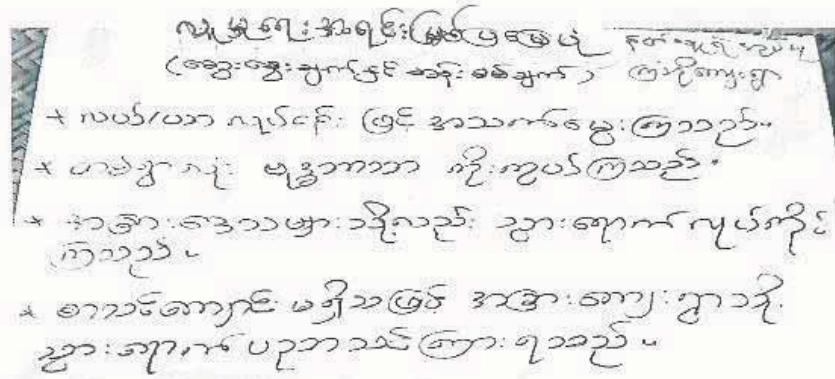 လူမှုရေးအရင်းအမြစ်ပြမြေပုံ
(ဆွေးနွေးချက်နှင့် ဆန်းစစ်ချက်) ကြံခို့ကျေးရွာ
* လယ်/ယာ လုပ်ငန်း ဖြင့် အသက်မွေးကြသည်။
* တစ်ရွာလုံး ဗုဒ္ဓဘာသာ ကိုးကွယ်ကြသည်။
* အခြားဒေသများသို့လည်း သွားရောက်လုပ်ကိုင်
ကြသည်။
* စာသင်ကျောင်း မရှိသဖြင့် အခြားကျေးရွာသို့
သွားရောက်ပညာသင်ကြားရသည်။